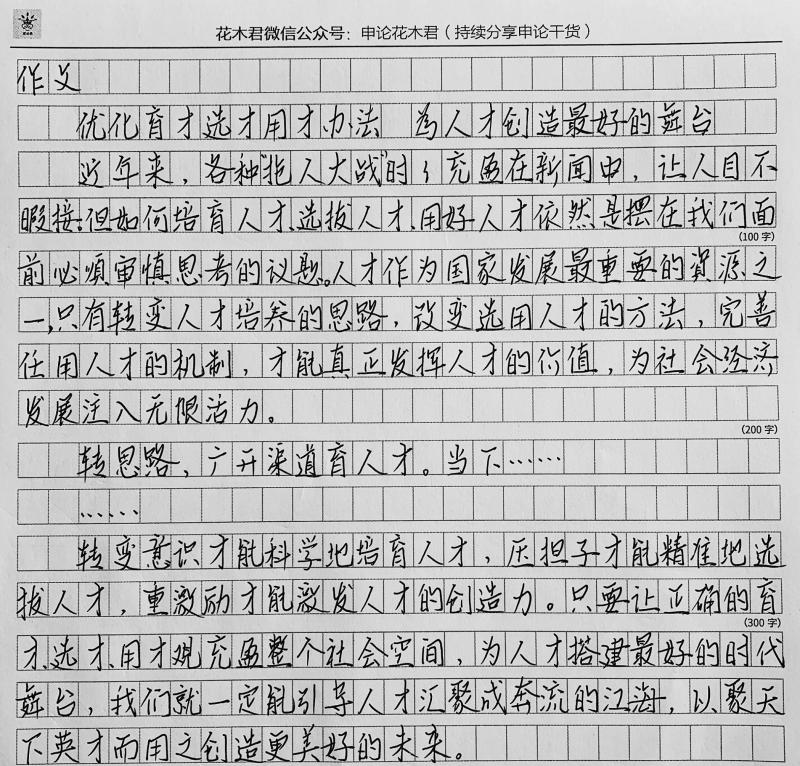 花木君微信公众号：申论花木君（持续分享申论干货）
作文
优化育才选才用才办法 為人才创造最好的舞台
近年来，各种“抢人大战”时々充盈在新闻中，让人目不
暇接；但如何培育人才、选拔人才、用好人才依然是摆在我们面
(100字)
前必須审慎思考的议题。人才作为国家发展最重要的資源之
一，只有转变人才培养的思路，改变选用人才的方法，完善
任用人才的机制，才能真正发挥人才的价值，为社会经济
发展注入无限活力。
(200字)
转思路，广开渠道育人才。当下……
……
转变意识才能科学地培育人才，压担子才能精准地选
拔人才，重激励才能激发人才的创造力。只要让正确的育
(300字)
才、选才、用才观充盈整个社会空间，为人才搭建最好的时代
舞台，我们就一定能引导人才汇聚成奔流的江海，以聚天
下英才而用之创造更美好的未来。